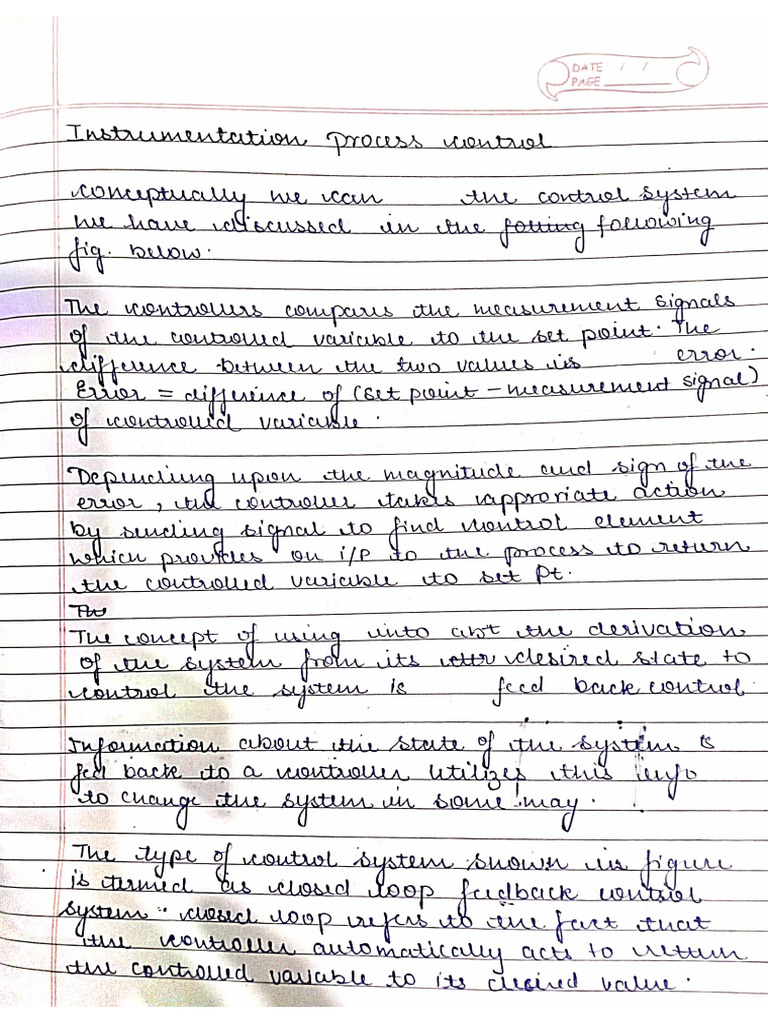 DATE / /
PAGE
Instrumentation process control
conceptually we can the control system
we have discussed in the follting following
fig. below.
The controllers compares the measurement signals
of the controlled variable to the set point. The
difference between the two values is error.
Error = difference of (set point - measurement signal)
of controlled variable.
Depending upon the magnitude and sign of the
error, the controller takes approriate action
by sending signal to find control element
which provides on i/p to the process to return
the controlled variable to set pt.
The
The concept of using info abt the derivation
of the system from its desired state to
control the system is feed back control.
Information about the state of the system is
feed back to a controller utilizes this info
to change the system in some way.
The type of control system shown in figure
is termed as closed loop feedback control
system. closed loop refers to the fact that
the controller automatically acts to return
the controlled variable to its desired value.